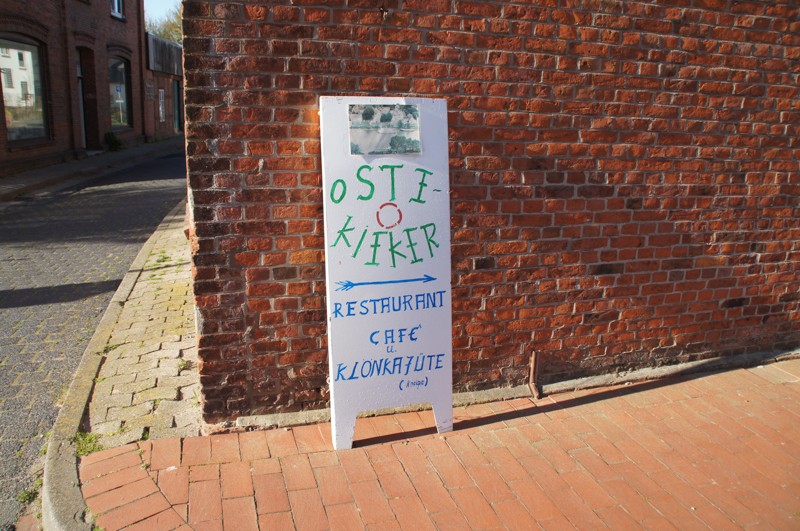 OSTE-
KIEKER
RESTAURANT
CAFÉ
U.
KLÖNKAJÜTE